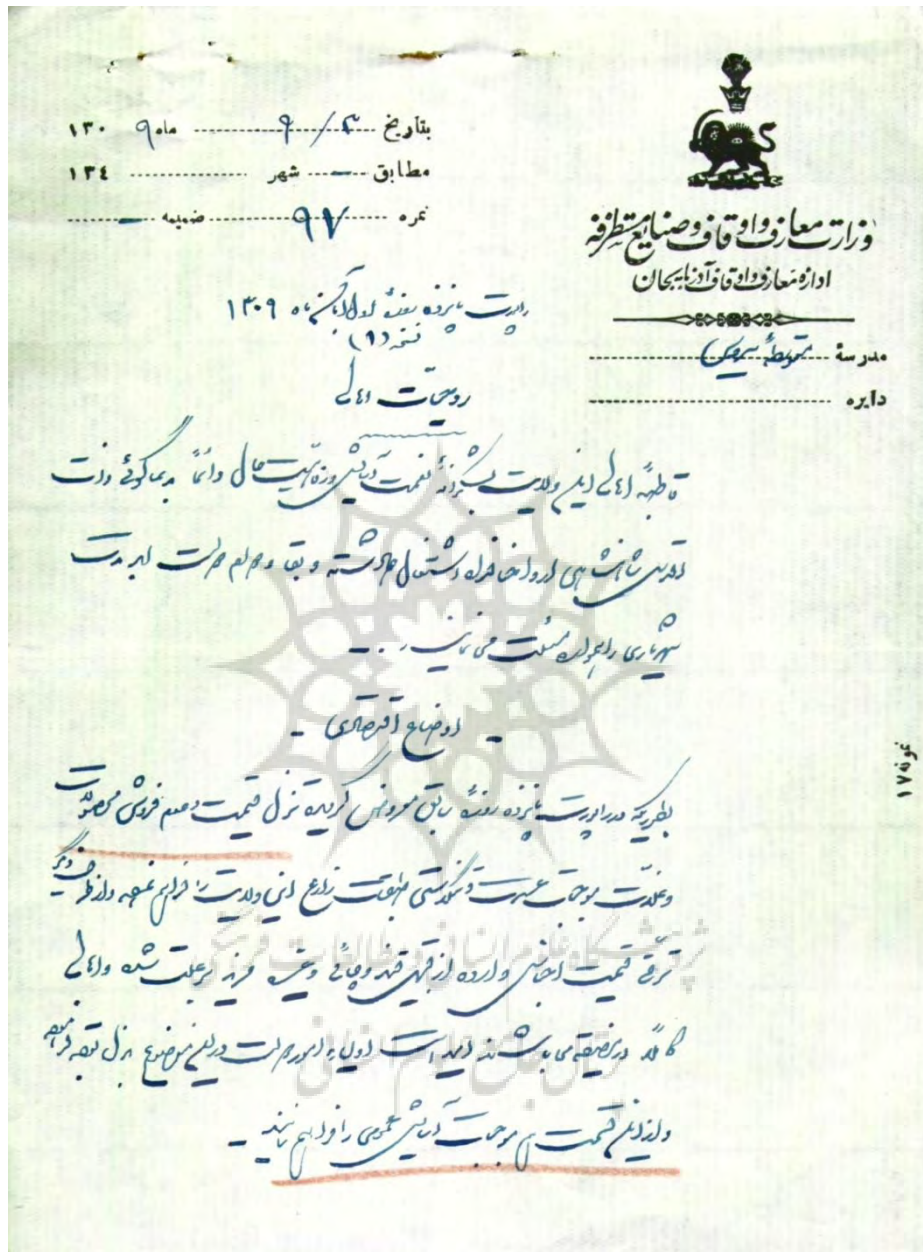 وزارت معارف و اوقاف و صنایع مستظرفه
اداره معارف و اوقاف آذربایجان
مدرسهٔ متوسطهٔ
دایره
بتاریخ ۳/۹ ماه ۹ ۱۳۰
مطابق — شهر ۱۳٤
نمره ۹۷ ضمیمه —
راپورت پانزده روزهٔ اول آبان ماه ۱۳۰۹
(۹)
روحیات اهالی
قاطبهٔ اهالی این ولایت بشکرانهٔ نعمت آسایش و رفاهیت حال دائماً بدعاگوئی ذات
اقدس شاهنشاهی ارواحنا فداه اشتغال داشته و بقا و دوام دولت ابد مدت
شهریاری را مسئلت می نمایند . —
— اوضاع اقتصادی —
بطوریکه در راپورت پانزده روزهٔ سابق معروض گردیده تنزل قیمت و عدم فروش محصولات
و غلات موجبات عسرت و تنگدستی طبقات زارع این ولایت را فراهم نموده و از طرف دیگر
ترقی قیمت اجناس وارده از قبیل قند و چائی و غیره مزید بر علت شده و اهالی
کاملاً در مضیقه می باشند امید است اولیاء امور دولت در این موضوع بذل توجه فرموده
و از این قسمت هم موجبات آسایش عمومی را فراهم نمایند —
نمونه ۱۷
پژوهشگاه علوم انسانی و مطالعات فرهنگی
پرتال جامع علوم انسانی